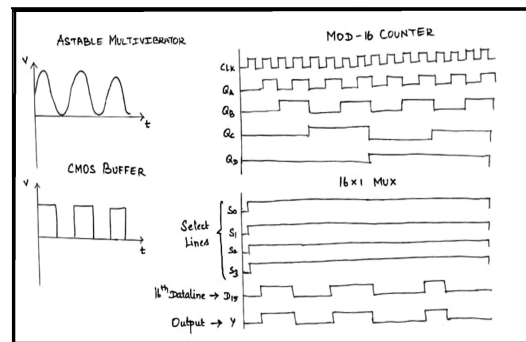 ASTABLE MULTIVIBRATOR
V
t
CMOS BUFFER
V
t
MOD-16 COUNTER
CLK
QA
QB
QC
QD
16x1 MUX
Select
Lines
S0
S1
S2
S3
16th Dataline → D15
Output → Y